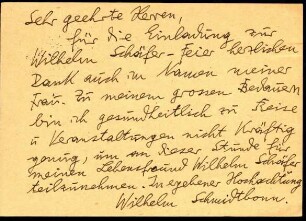 Sehr geehrte Herren,
für die Einladung zur
Wilhelm Schäfer-Feier herzlichen
Dank auch im Namen meiner
Frau. Zu meinem grossen Bedauern
bin ich gesundheitlich zu Reise
u Veranstaltungen nicht kräftig
genug, um an dieser Stunde für
meinen Lebensfreund Wilhelm Schäfer
teilzunehmen. In ergebener Hochachtung
Wilhelm Schmidtbonn.